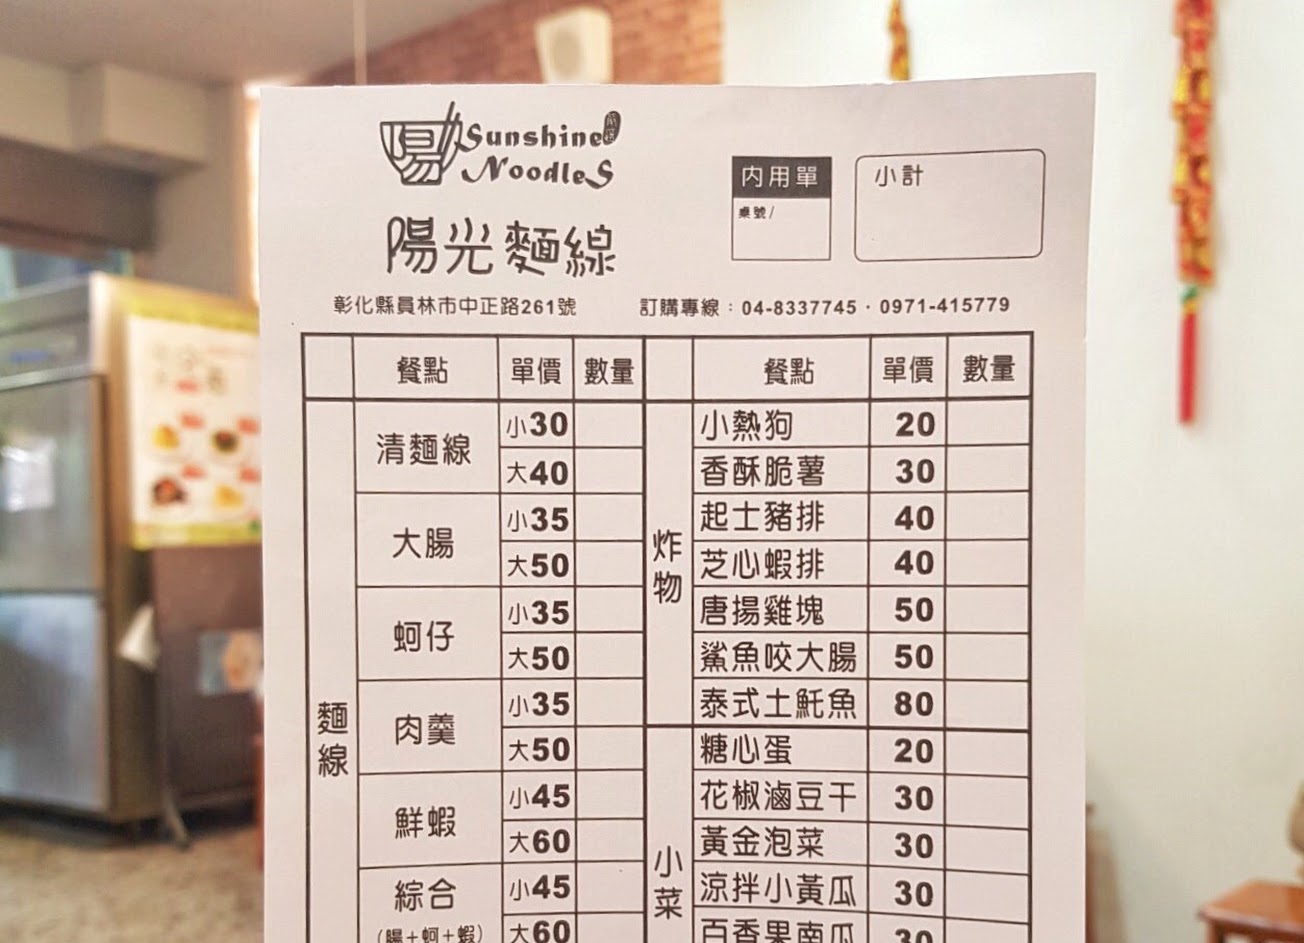 陽
Sunshine
NoodleS
陽光麵線
內用單
桌號/
小計
彰化縣員林市中正路261號
訂購專線：04-8337745．0971-415779
餐點 單價 數量 餐點 單價 數量
麵線
清麵線 小30
大40
大腸 小35
大50
蚵仔 小35
大50
肉羹 小35
大50
鮮蝦 小45
大60
綜合 小45
(腸+蚵+蝦) 大60
炸物
小熱狗 20
香酥脆薯 30
起士豬排 40
芝心蝦排 40
唐揚雞塊 50
鯊魚咬大腸 50
泰式土魠魚 80
小菜
糖心蛋 20
花椒滷豆干 30
黃金泡菜 30
涼拌小黃瓜 30
百香果南瓜 30